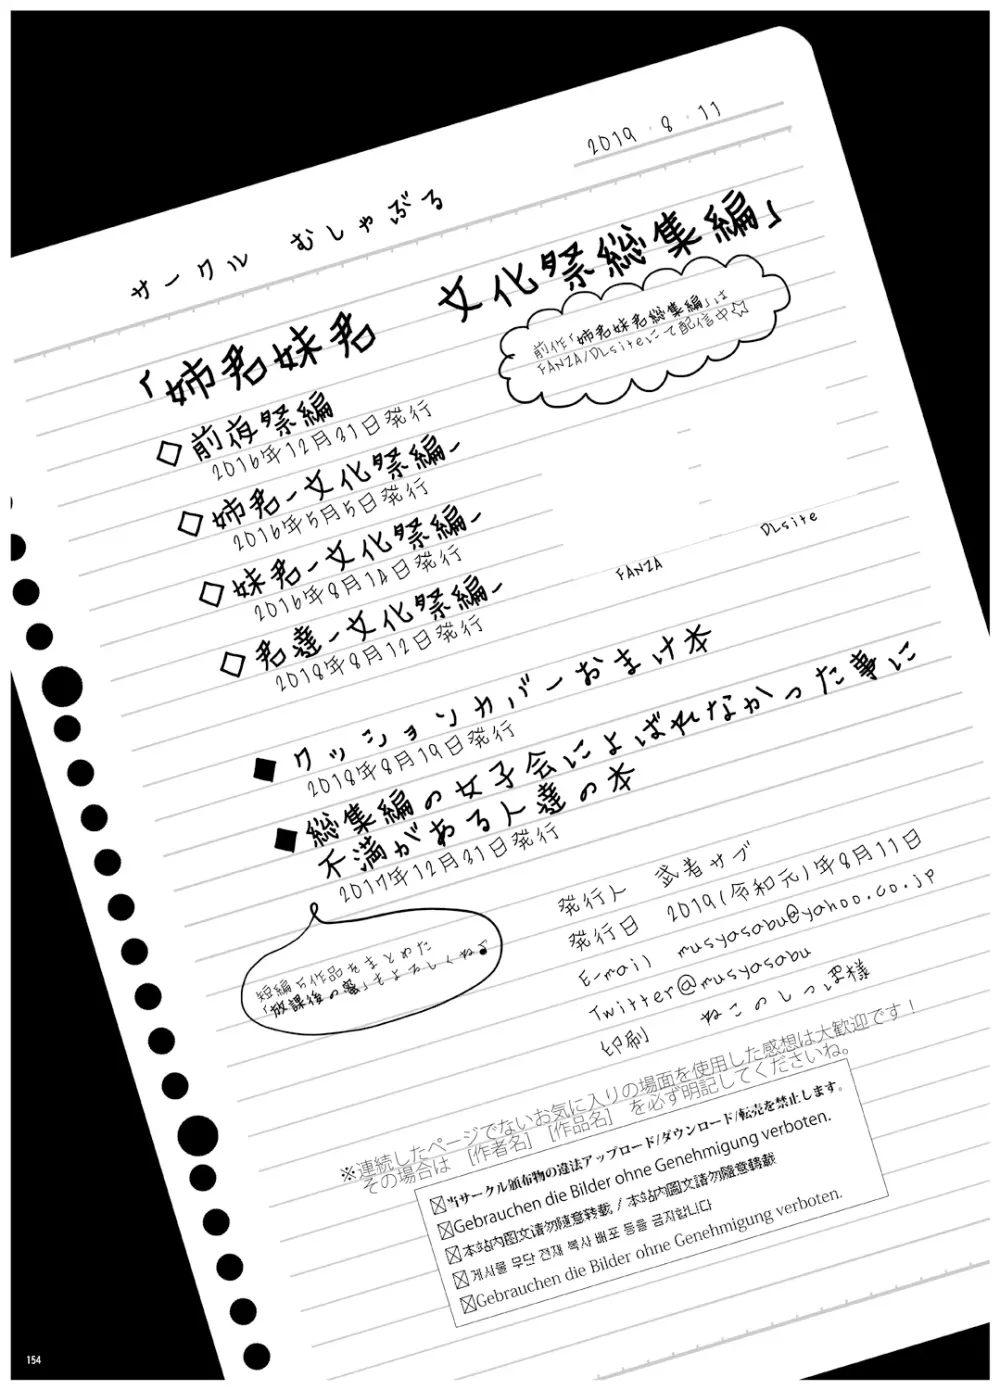 2019・8・11
サークル むしゃぶる
「姉君妹君 文化祭総集編」
前作「姉君妹君総集編」は
FANZA/DLsiteにて配信中☆
◇前夜祭編
2016年12月31日発行
◇姉君-文化祭編-
2016年5月5日発行
◇妹君-文化祭編-
2016年8月14日発行
◇君達-文化祭編-
2018年8月12日発行
FANZA
DLsite
◆クッションカバーおまけ本
2018年8月19日発行
◆総集編の女子会によばれなかった事に
不満がある人達の本
2017年12月31日発行
短編5作品をまとめた
「放課後の蜜」もよろしくね♪
発行人 武者サブ
発行日 2019(令和元)年8月11日
E-mail musyasabu@yahoo.co.jp
Twitter@musyasabu
印刷 ねこのしっぽ様
※連続したページでないお気に入りの場面を使用した感想は大歓迎です!
その場合は [作者名] [作品名] を必ず明記してくださいね。
☒当サークル頒布物の違法アップロード/ダウンロード/転売を禁止します。
☒Gebrauchen die Bilder ohne Genehmigung verboten.
☒本站内图文请勿随意转载 / 本站內圖文請勿隨意轉載
☒게시물 무단 전재 복사 배포 등을 금지합니다
☒Gebrauchen die Bilder ohne Genehmigung verboten.
154